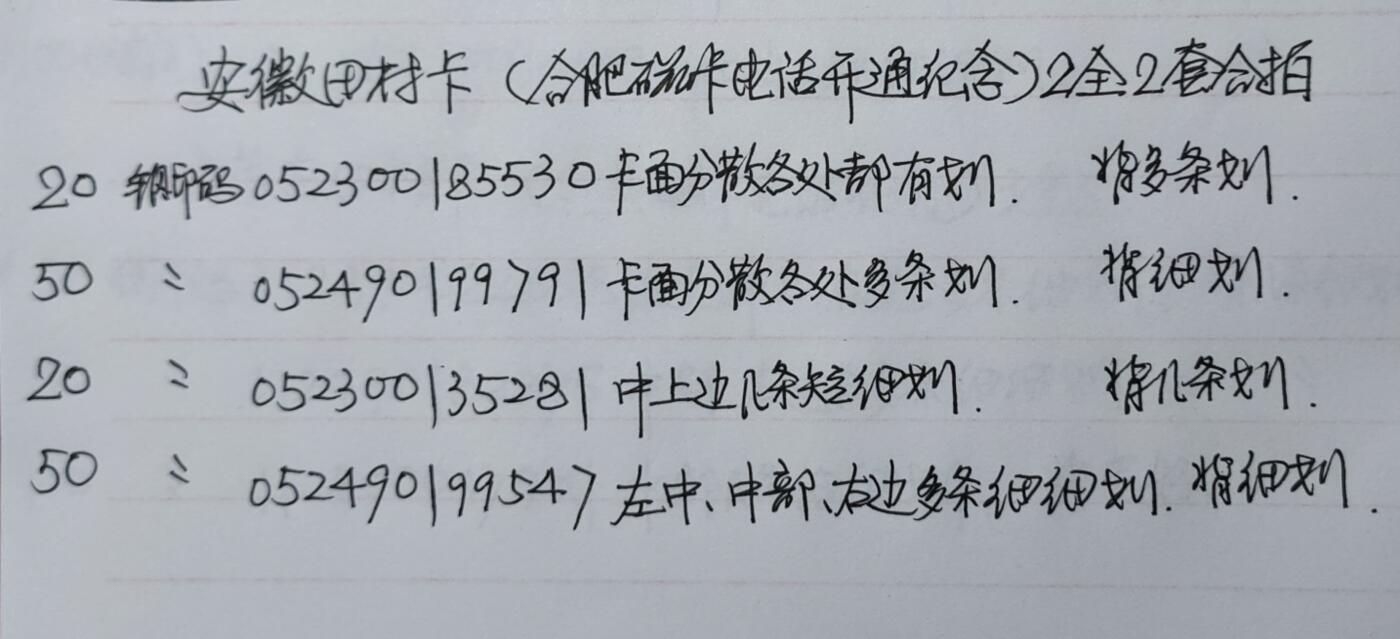 安徽田村卡（合肥磁卡电话开通纪念）2全2套合拍
20 轴印码052300185530卡面分散各处都有划. 背多条划.
50 〃 052490199791卡面分散各处多条划. 背细划.
20 〃 052300135281中上边几条短细划. 背几条划.
50 〃 052490199547左中、中部、右边多条细细划. 背细划.